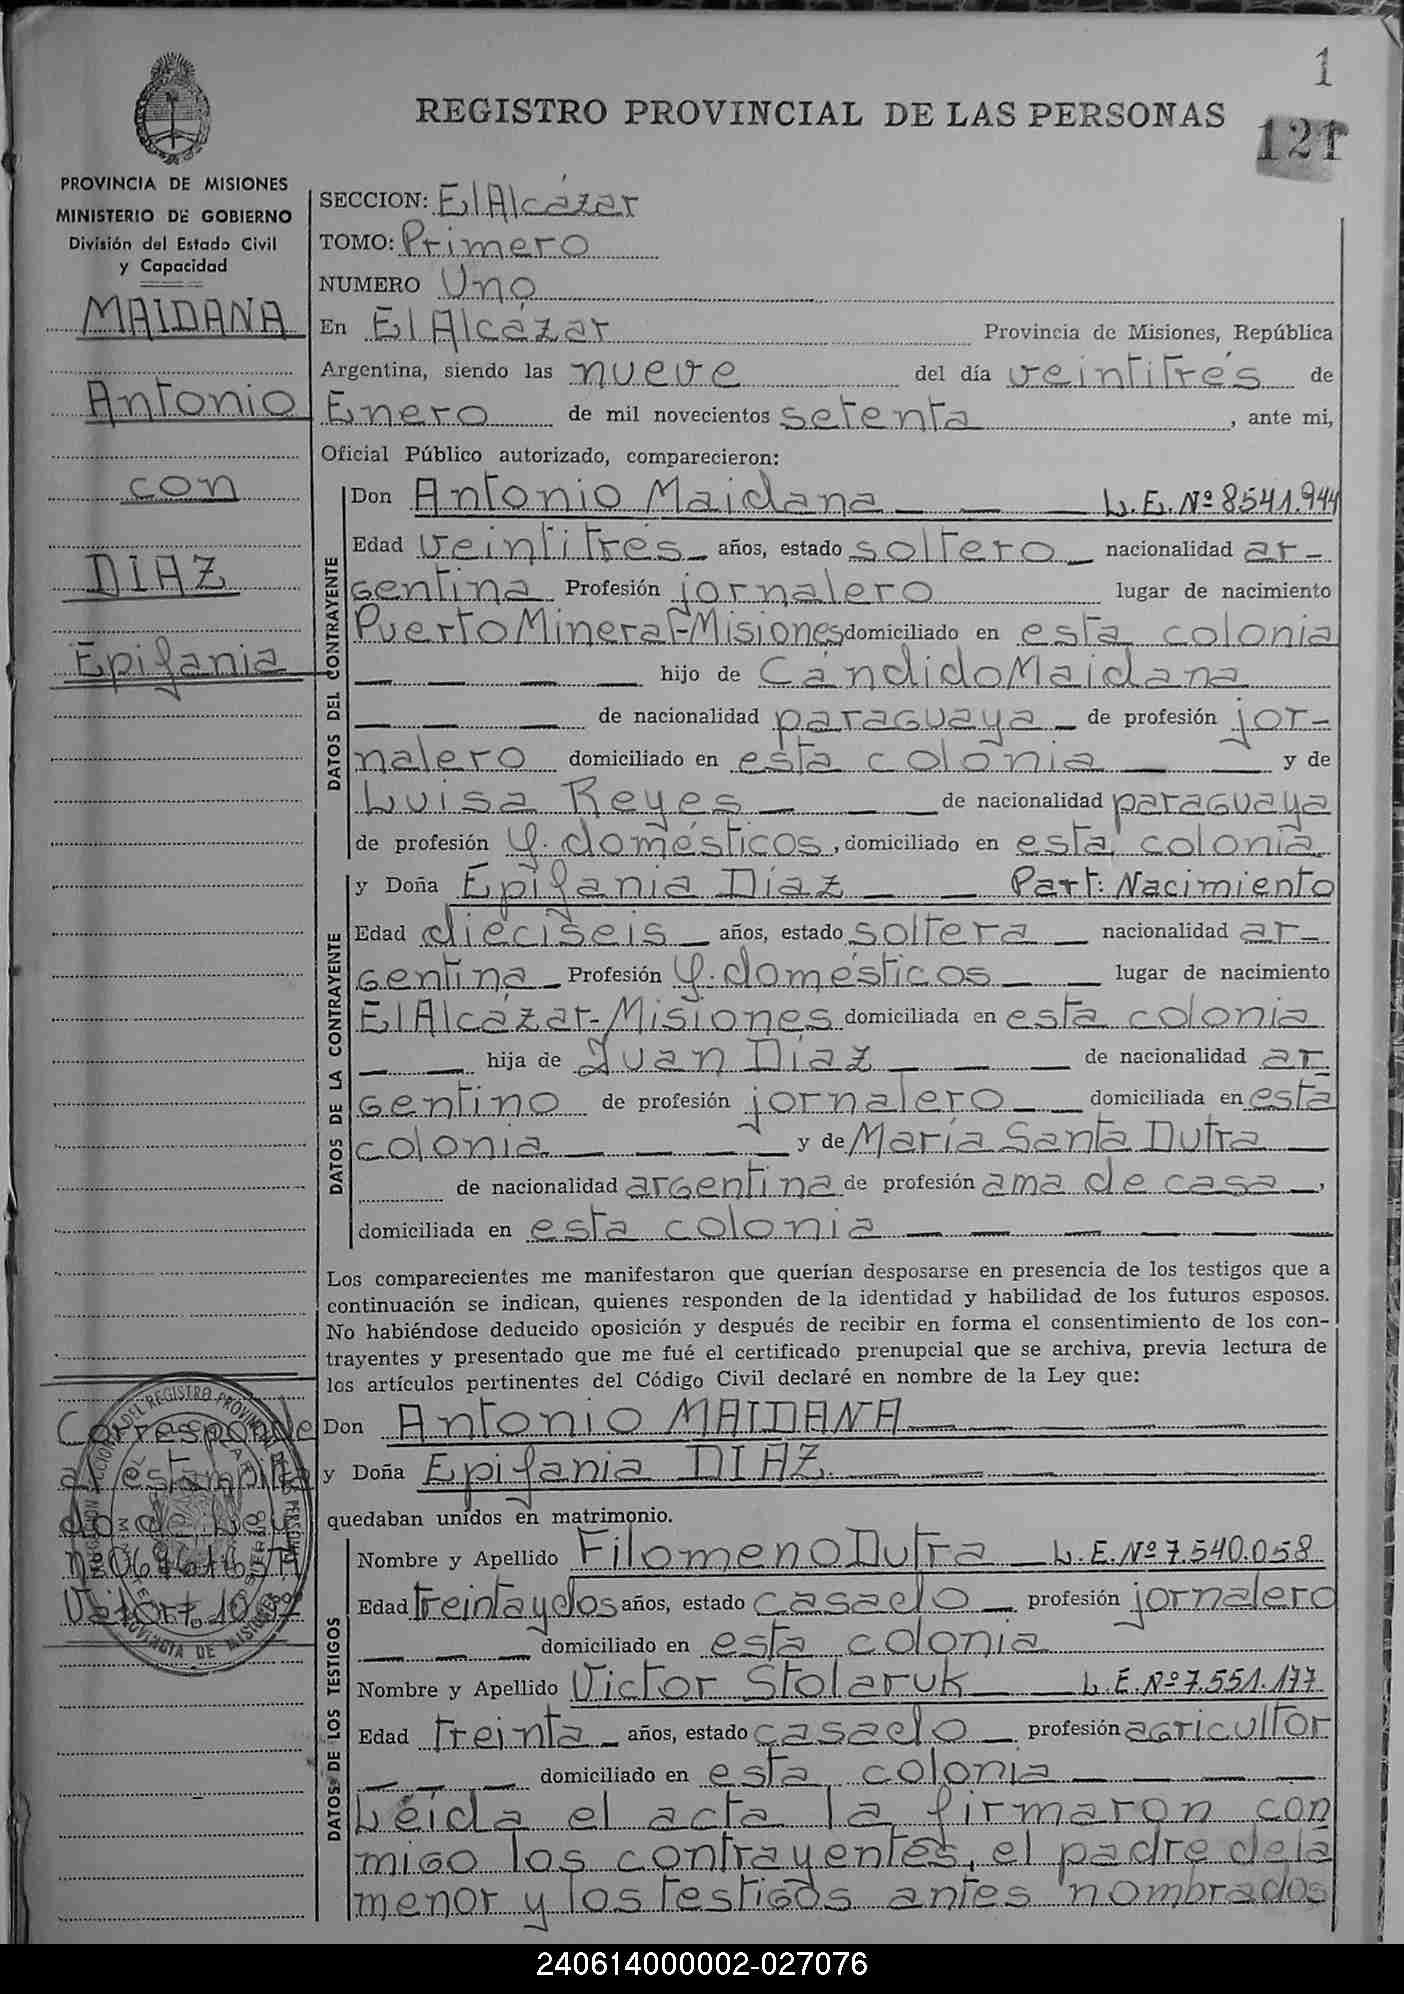 1
REGISTRO PROVINCIAL DE LAS PERSONAS
121
PROVINCIA DE MISIONES
MINISTERIO DE GOBIERNO
División del Estado Civil
y Capacidad
MAIDANA
Antonio
con
DIAZ
Epifania
SECCION: El Alcázar
TOMO: Primero
NUMERO Uno
En El Alcázar Provincia de Misiones, República
Argentina, siendo las nueve del día veintitrés de
Enero de mil novecientos setenta, ante mi,
Oficial Público autorizado, comparecieron:
DATOS DEL CONTRAYENTE
Don Antonio Maidana L.E. Nº 8541.944
Edad veintitrés años, estado soltero nacionalidad ar-
gentina Profesión jornalero lugar de nacimiento
Puerto Mineral-Misiones domiciliado en esta colonia
hijo de Cándido Maidana
de nacionalidad paraguaya de profesión jor-
nalero domiciliado en esta colonia y de
Luisa Reyes de nacionalidad paraguaya
de profesión Q. domésticos, domiciliado en esta colonia
DATOS DE LA CONTRAYENTE
y Doña Epifania Díaz Part: Nacimiento
Edad dieciseis años, estado soltera nacionalidad ar-
gentina Profesión Q. domésticos lugar de nacimiento
El Alcázar-Misiones domiciliada en esta colonia
hija de Juan Díaz de nacionalidad ar
gentino de profesión jornalero domiciliada en esta
colonia y de María Santa Dutra
de nacionalidad argentina de profesión ama de casa,
domiciliada en esta colonia
Los comparecientes me manifestaron que querían desposarse en presencia de los testigos que a
continuación se indican, quienes responden de la identidad y habilidad de los futuros esposos.
No habiéndose deducido oposición y después de recibir en forma el consentimiento de los con-
trayentes y presentado que me fué el certificado prenupcial que se archiva, previa lectura de
los artículos pertinentes del Código Civil declaré en nombre de la Ley que:
Don Antonio MAIDANA
y Doña Epifania DIAZ
quedaban unidos en matrimonio.
Corresponde
al estampilla
do de Ley
Valor
PROVINCIA DE MISIONES
DATOS DE LOS TESTIGOS
Nombre y Apellido Filomeno Dutra L.E. Nº 7.540.058
Edad treinta y dos años, estado casado profesión jornalero
domiciliado en esta colonia
Nombre y Apellido Victor Stolaruk L.E. Nº 7.551.177
Edad treinta años, estado casado profesión agricultor
domiciliado en esta colonia
Leída el acta la firmaron con
migo los contrayentes, el padre de la
menor y los testigos antes nombrados
240614000002-027076